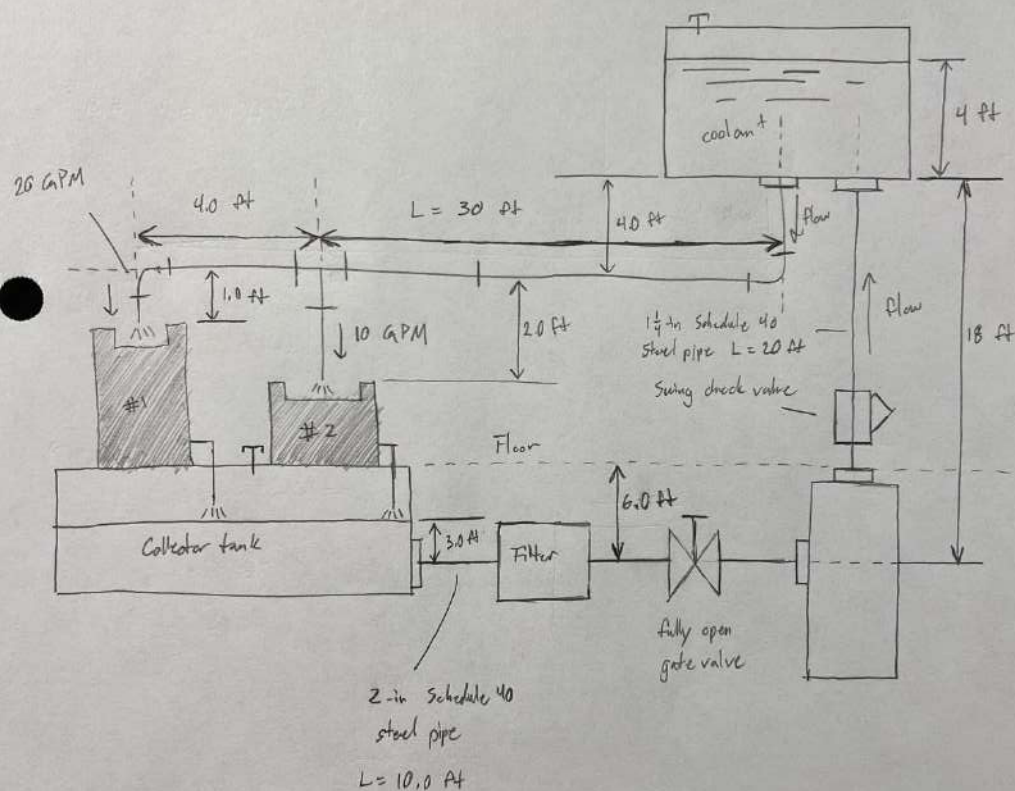 coolant
4 ft
20 GPM
4.0 ft
L = 30 ft
4.0 ft
flow
1.0 ft
10 GPM
2.0 ft
1 1/4-in Schedule 40
steel pipe L = 20 ft
flow
18 ft
Swing check valve
#1
#2
Floor
6.0 ft
Collector tank
3.0 ft
Filter
fully open
gate valve
2-in Schedule 40
steel pipe
L = 10.0 ft